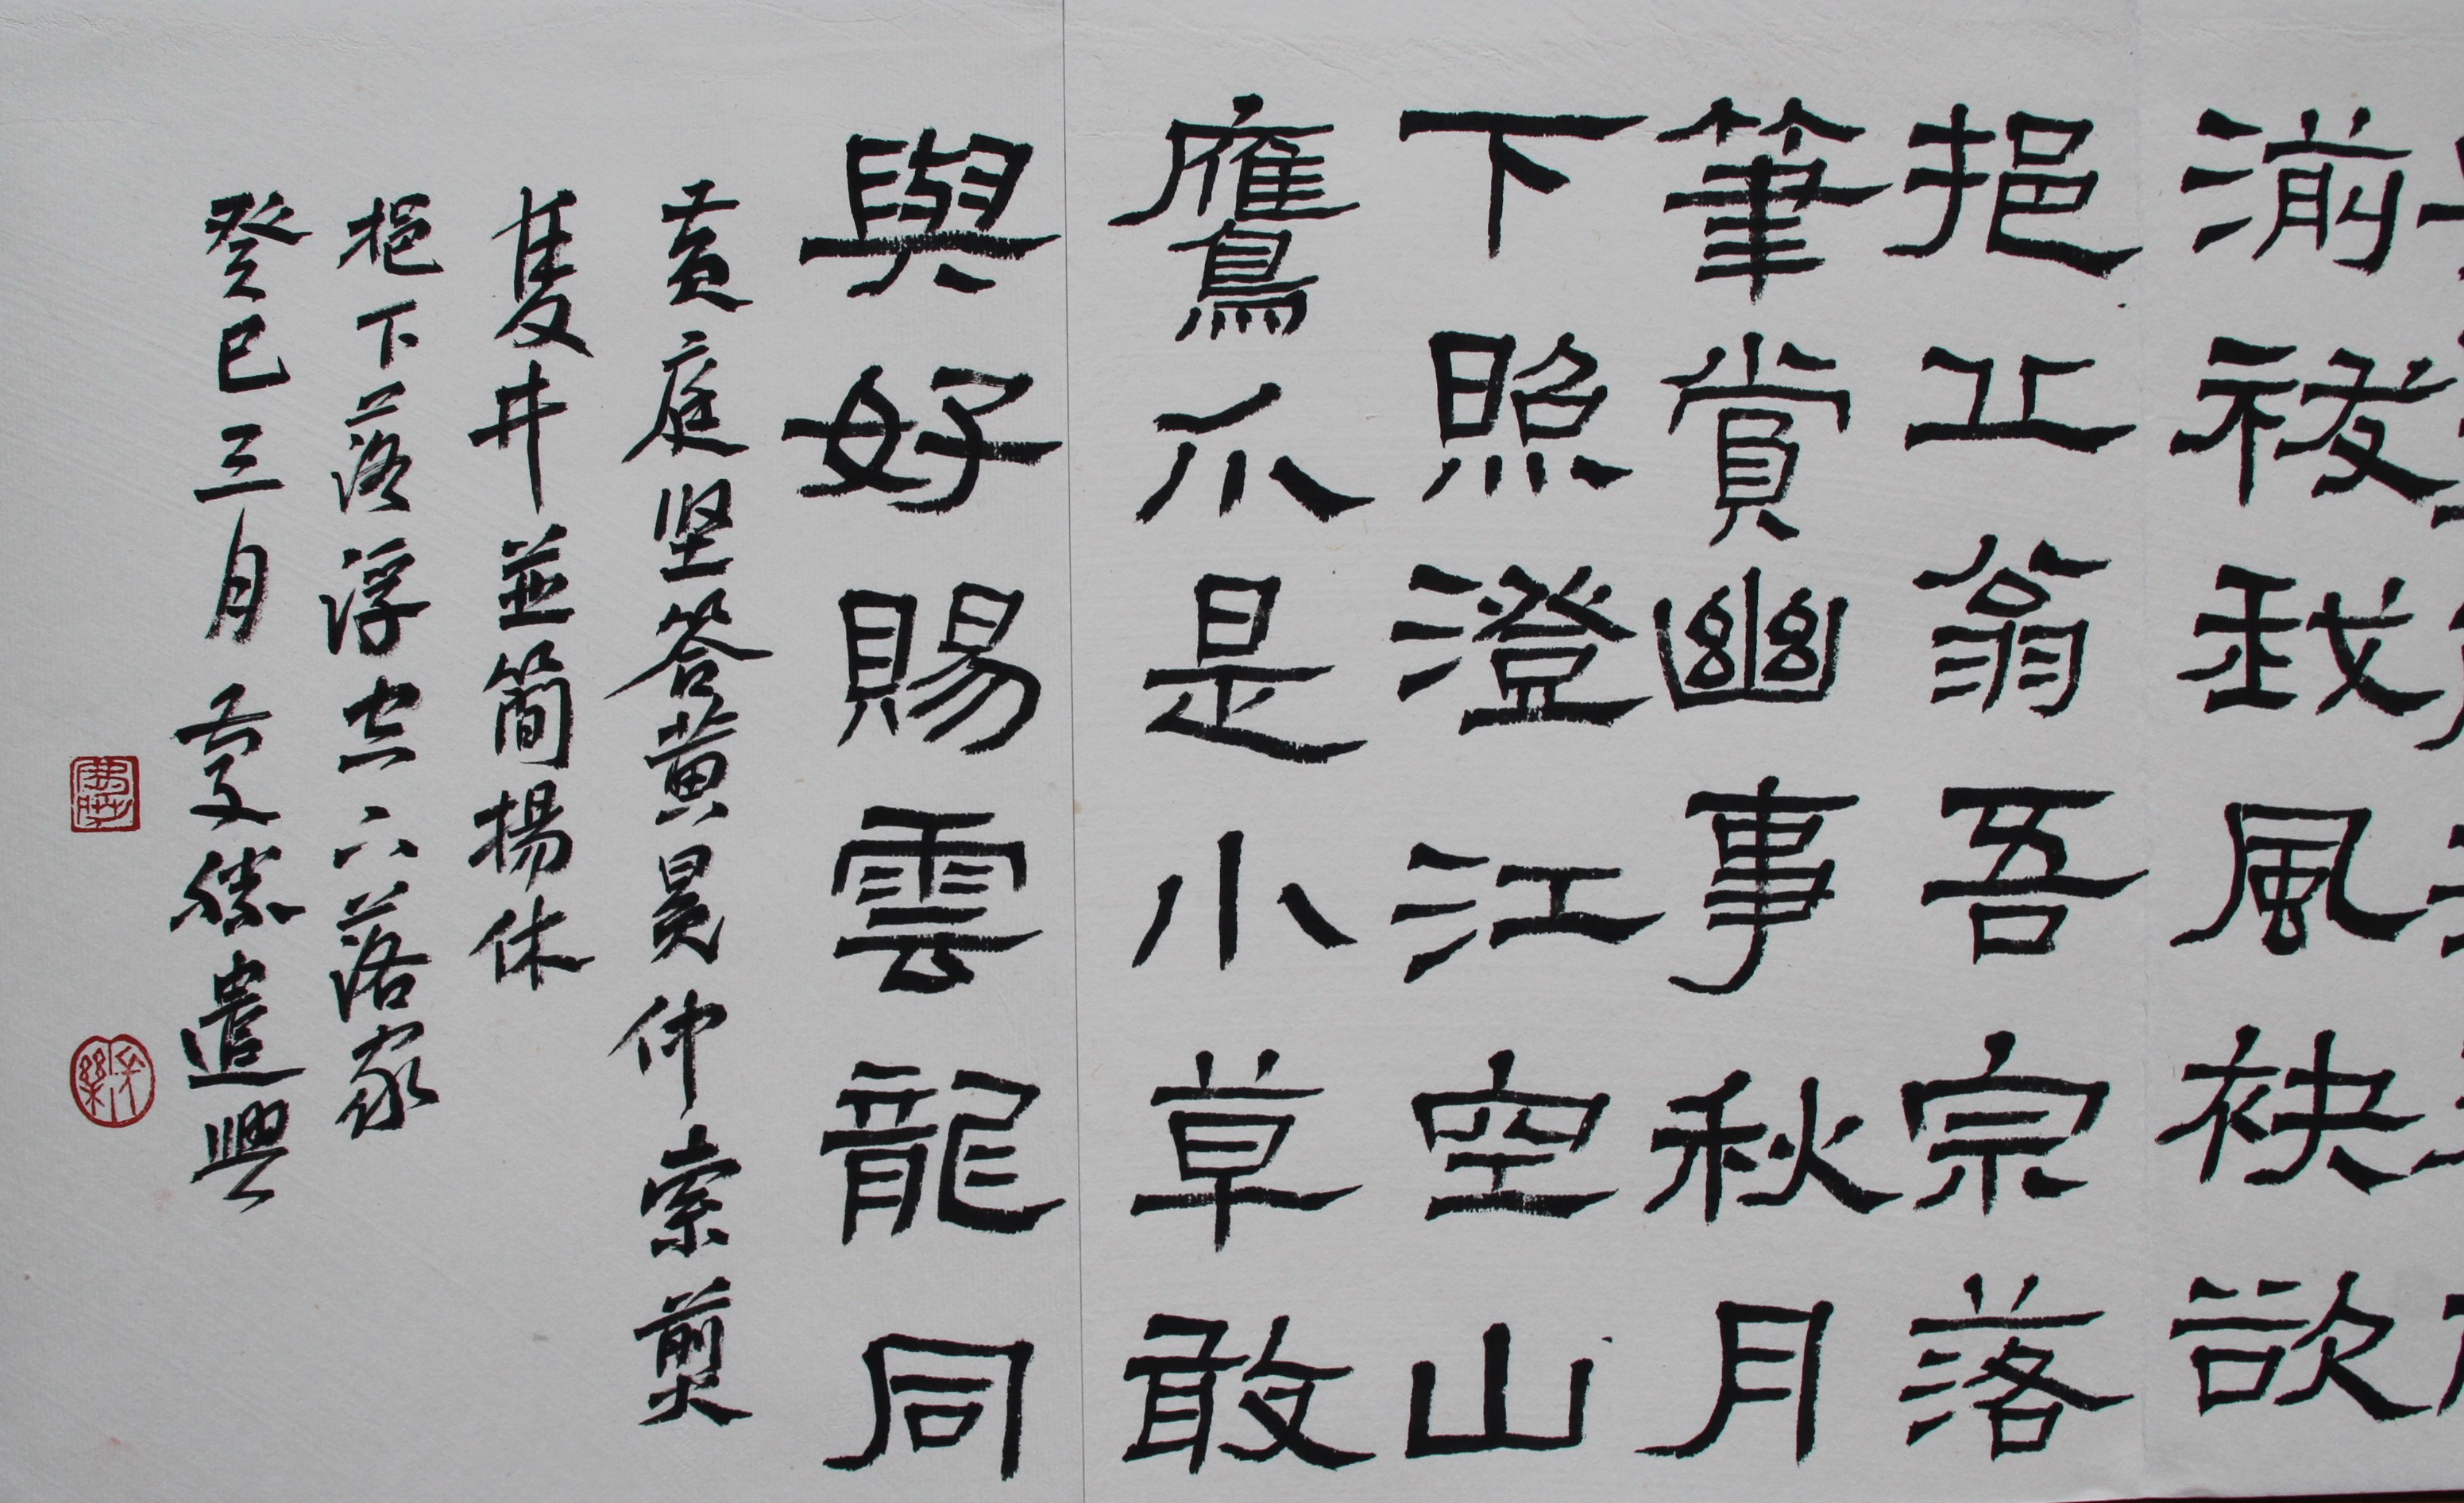 湔祓我風袂欲
挹丘翁吾宗落
筆賞幽事秋月
下照澄江空山
鷹爪是小草敢
與好賜雲龍同
黃庭坚答黄冕仲索煎
雙井並簡揚休
挹下落浮空六落家
癸巳三月慶 遣興